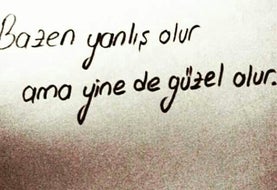 Bazen yanlış olur
ama yine de güzel olur.